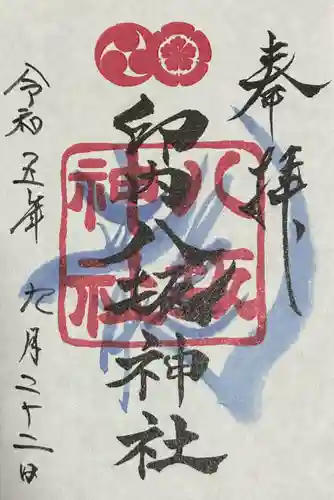 奉拝
八坂
神社
印内八坂神社
令和五年九月二十二日